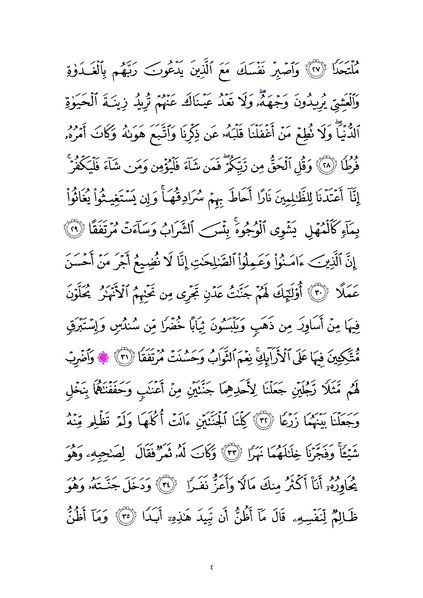 مُلْتَحَدًا ﴿٢٧﴾ وَاصْبِرْ نَفْسَكَ مَعَ الَّذِينَ يَدْعُونَ رَبَّهُم بِالْغَدَوٰةِ
وَالْعَشِيِّ يُرِيدُونَ وَجْهَهُۥ ۖ وَلَا تَعْدُ عَيْنَاكَ عَنْهُمْ تُرِيدُ زِينَةَ الْحَيَوٰةِ
الدُّنْيَا ۖ وَلَا تُطِعْ مَنْ أَغْفَلْنَا قَلْبَهُۥ عَن ذِكْرِنَا وَاتَّبَعَ هَوَىٰهُ وَكَانَ أَمْرُهُۥ
فُرُطًا ﴿٢٨﴾ وَقُلِ الْحَقُّ مِن رَّبِّكُمْ ۖ فَمَن شَآءَ فَلْيُؤْمِن وَمَن شَآءَ فَلْيَكْفُرْ ۚ
إِنَّآ أَعْتَدْنَا لِلظَّٰلِمِينَ نَارًا أَحَاطَ بِهِمْ سُرَادِقُهَا ۚ وَإِن يَسْتَغِيثُوا۟ يُغَاثُوا۟
بِمَآءٍ كَالْمُهْلِ يَشْوِى الْوُجُوهَ ۚ بِئْسَ الشَّرَابُ وَسَآءَتْ مُرْتَفَقًا ﴿٢٩﴾
إِنَّ الَّذِينَ ءَامَنُوا۟ وَعَمِلُوا۟ الصَّٰلِحَٰتِ إِنَّا لَا نُضِيعُ أَجْرَ مَنْ أَحْسَنَ
عَمَلًا ﴿٣٠﴾ أُو۟لَٰٓئِكَ لَهُمْ جَنَّٰتُ عَدْنٍ تَجْرِى مِن تَحْتِهِمُ الْأَنْهَٰرُ يُحَلَّوْنَ
فِيهَا مِنْ أَسَاوِرَ مِن ذَهَبٍ وَيَلْبَسُونَ ثِيَابًا خُضْرًا مِّن سُندُسٍ وَإِسْتَبْرَقٍ
مُّتَّكِـِٔينَ فِيهَا عَلَى الْأَرَآئِكِ ۚ نِعْمَ الثَّوَابُ وَحَسُنَتْ مُرْتَفَقًا ﴿٣١﴾ ۞ وَاضْرِبْ
لَهُم مَّثَلًا رَّجُلَيْنِ جَعَلْنَا لِأَحَدِهِمَا جَنَّتَيْنِ مِنْ أَعْنَٰبٍ وَحَفَفْنَٰهُمَا بِنَخْلٍ
وَجَعَلْنَا بَيْنَهُمَا زَرْعًا ﴿٣٢﴾ كِلْتَا الْجَنَّتَيْنِ ءَاتَتْ أُكُلَهَا وَلَمْ تَظْلِم مِّنْهُ
شَيْـًٔا ۚ وَفَجَّرْنَا خِلَٰلَهُمَا نَهَرًا ﴿٣٣﴾ وَكَانَ لَهُۥ ثَمَرٌ فَقَالَ لِصَٰحِبِهِۦ وَهُوَ
يُحَاوِرُهُۥٓ أَنَا۠ أَكْثَرُ مِنكَ مَالًا وَأَعَزُّ نَفَرًا ﴿٣٤﴾ وَدَخَلَ جَنَّتَهُۥ وَهُوَ
ظَالِمٌ لِّنَفْسِهِۦ قَالَ مَآ أَظُنُّ أَن تَبِيدَ هَٰذِهِۦٓ أَبَدًا ﴿٣٥﴾ وَمَآ أَظُنُّ
٤